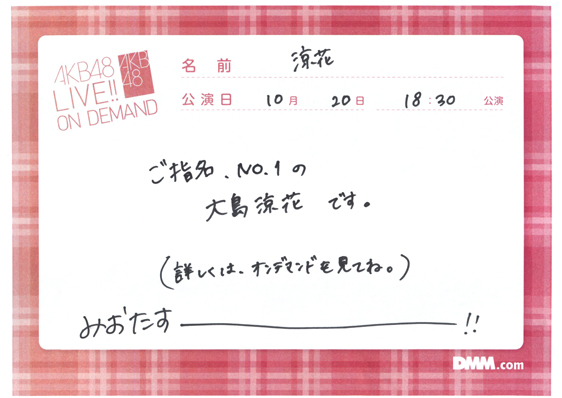 AKB48
LIVE!!
ON DEMAND
AKB
48
名前 涼花
公演日 10月 20日 18:30 公演
ご指名、NO.1の
大島涼花 です。
(詳しくは、オンデマンドを見てね。)
みおたす ー !!
DMM.com